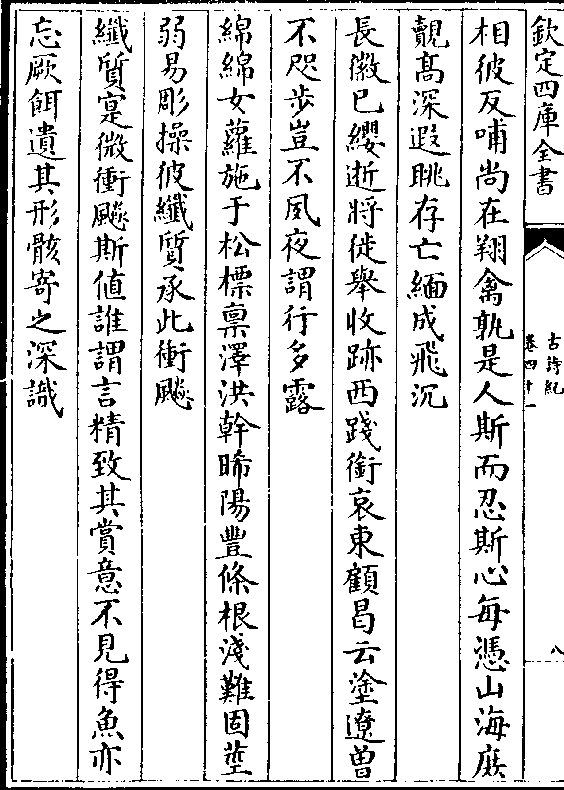 欽定四庫全書
古詩紀
卷四十一
八
相彼反哺尚在翔禽孰是人斯而忍斯心每憑山海庶
覿髙深遐眺存亡緬成飛沉
長徽已纓逝將徙舉收跡西踐銜哀東顧曷云塗遼曽
不咫步豈不夙夜謂行多露
綿綿女蘿施于松標禀澤洪幹晞陽豐條根淺難固莖
弱易彫操彼纖質承此衝飈
纖質寔微衝飈斯值誰謂言精致其賞意不見得魚亦
忘厥餌遺其形骸寄之深識